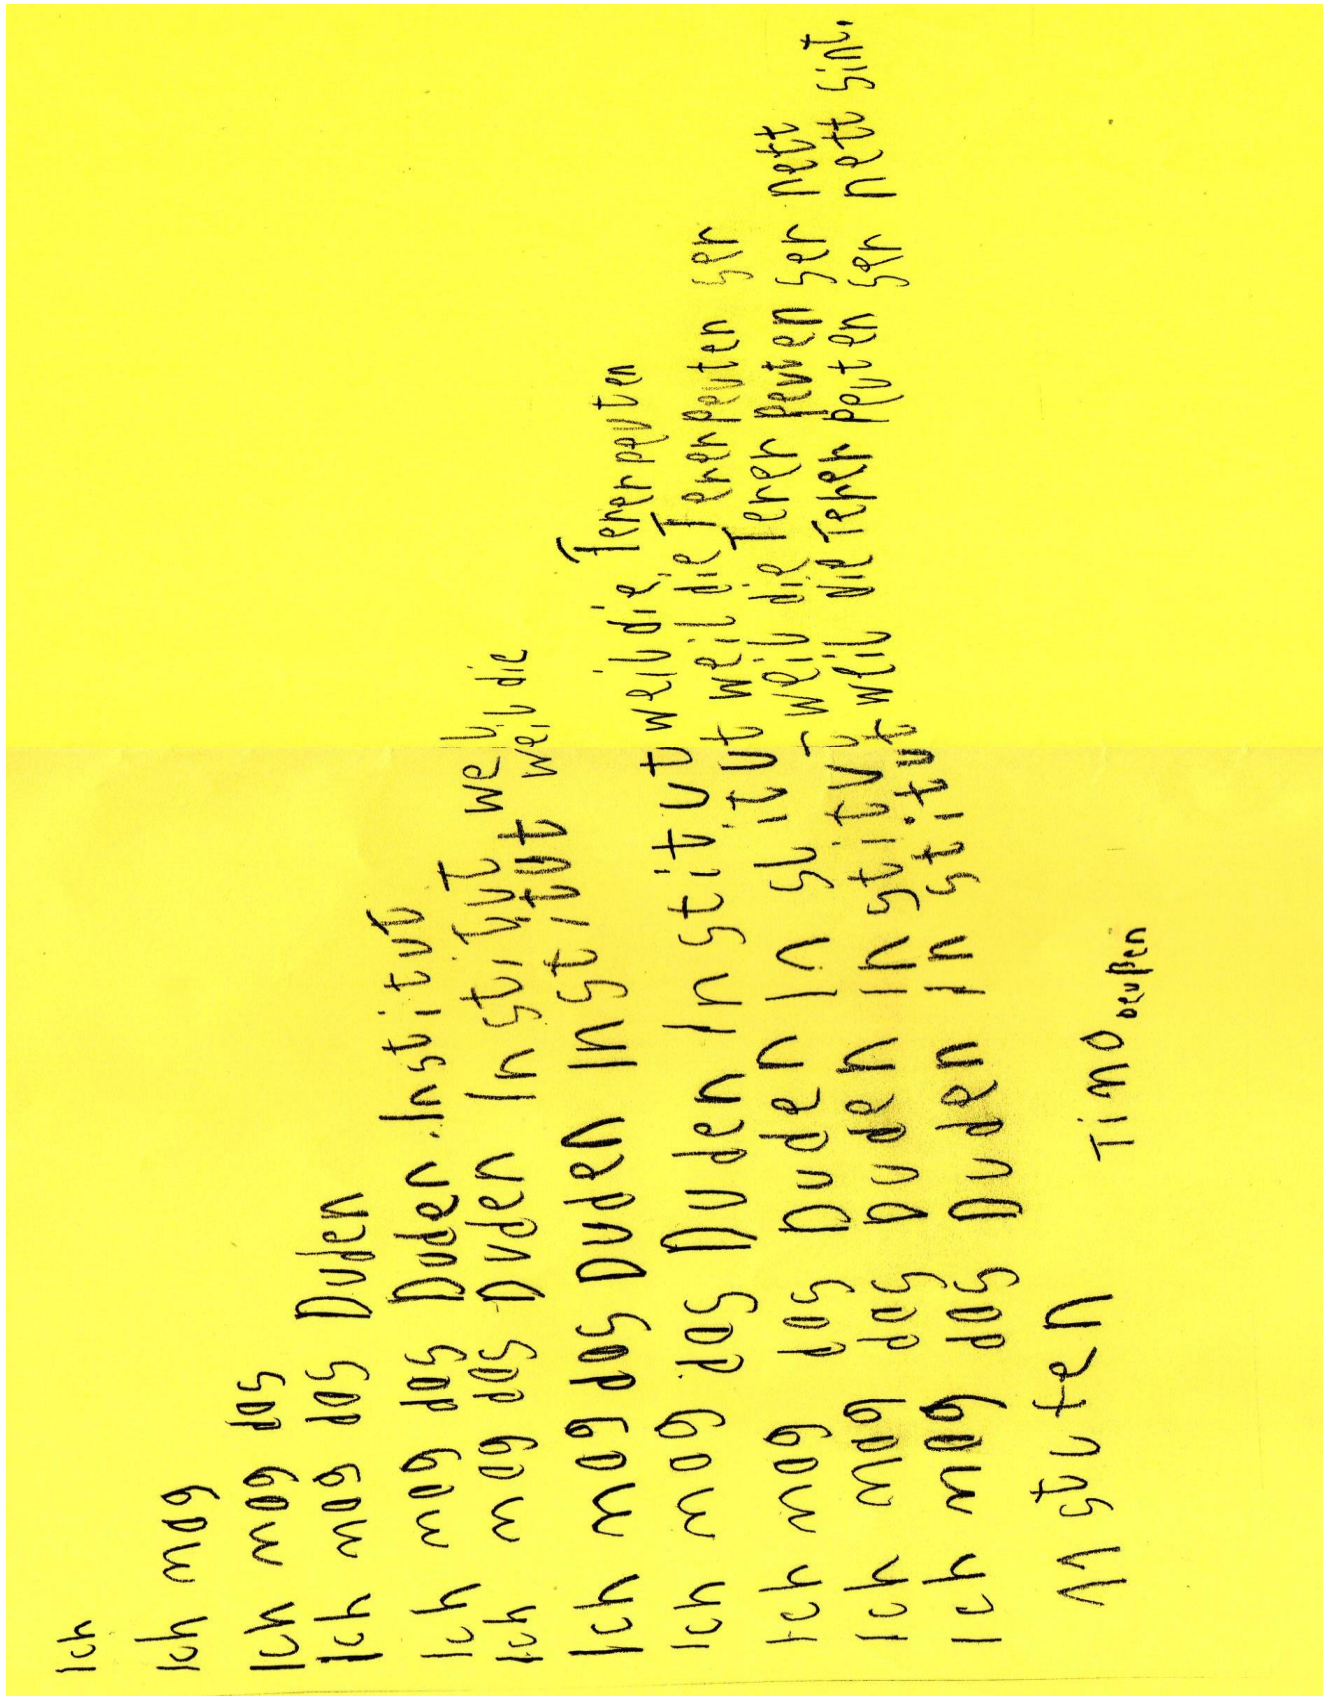 Ich
Ich mag
Ich mag das
Ich mag das Duden
Ich mag das Duden Institut
Ich mag das Duden Institut weil
Ich mag das Duden Institut weil die
Ich mag das Duden Institut weil die Tererpeuten
Ich mag das Duden Institut weil die Tererpeuten ser
Ich mag das Duden Institut weil die Tererpeuten ser nett
Ich mag das Duden Institut weil die Tererpeuten ser nett sint.
11 stufen Timo